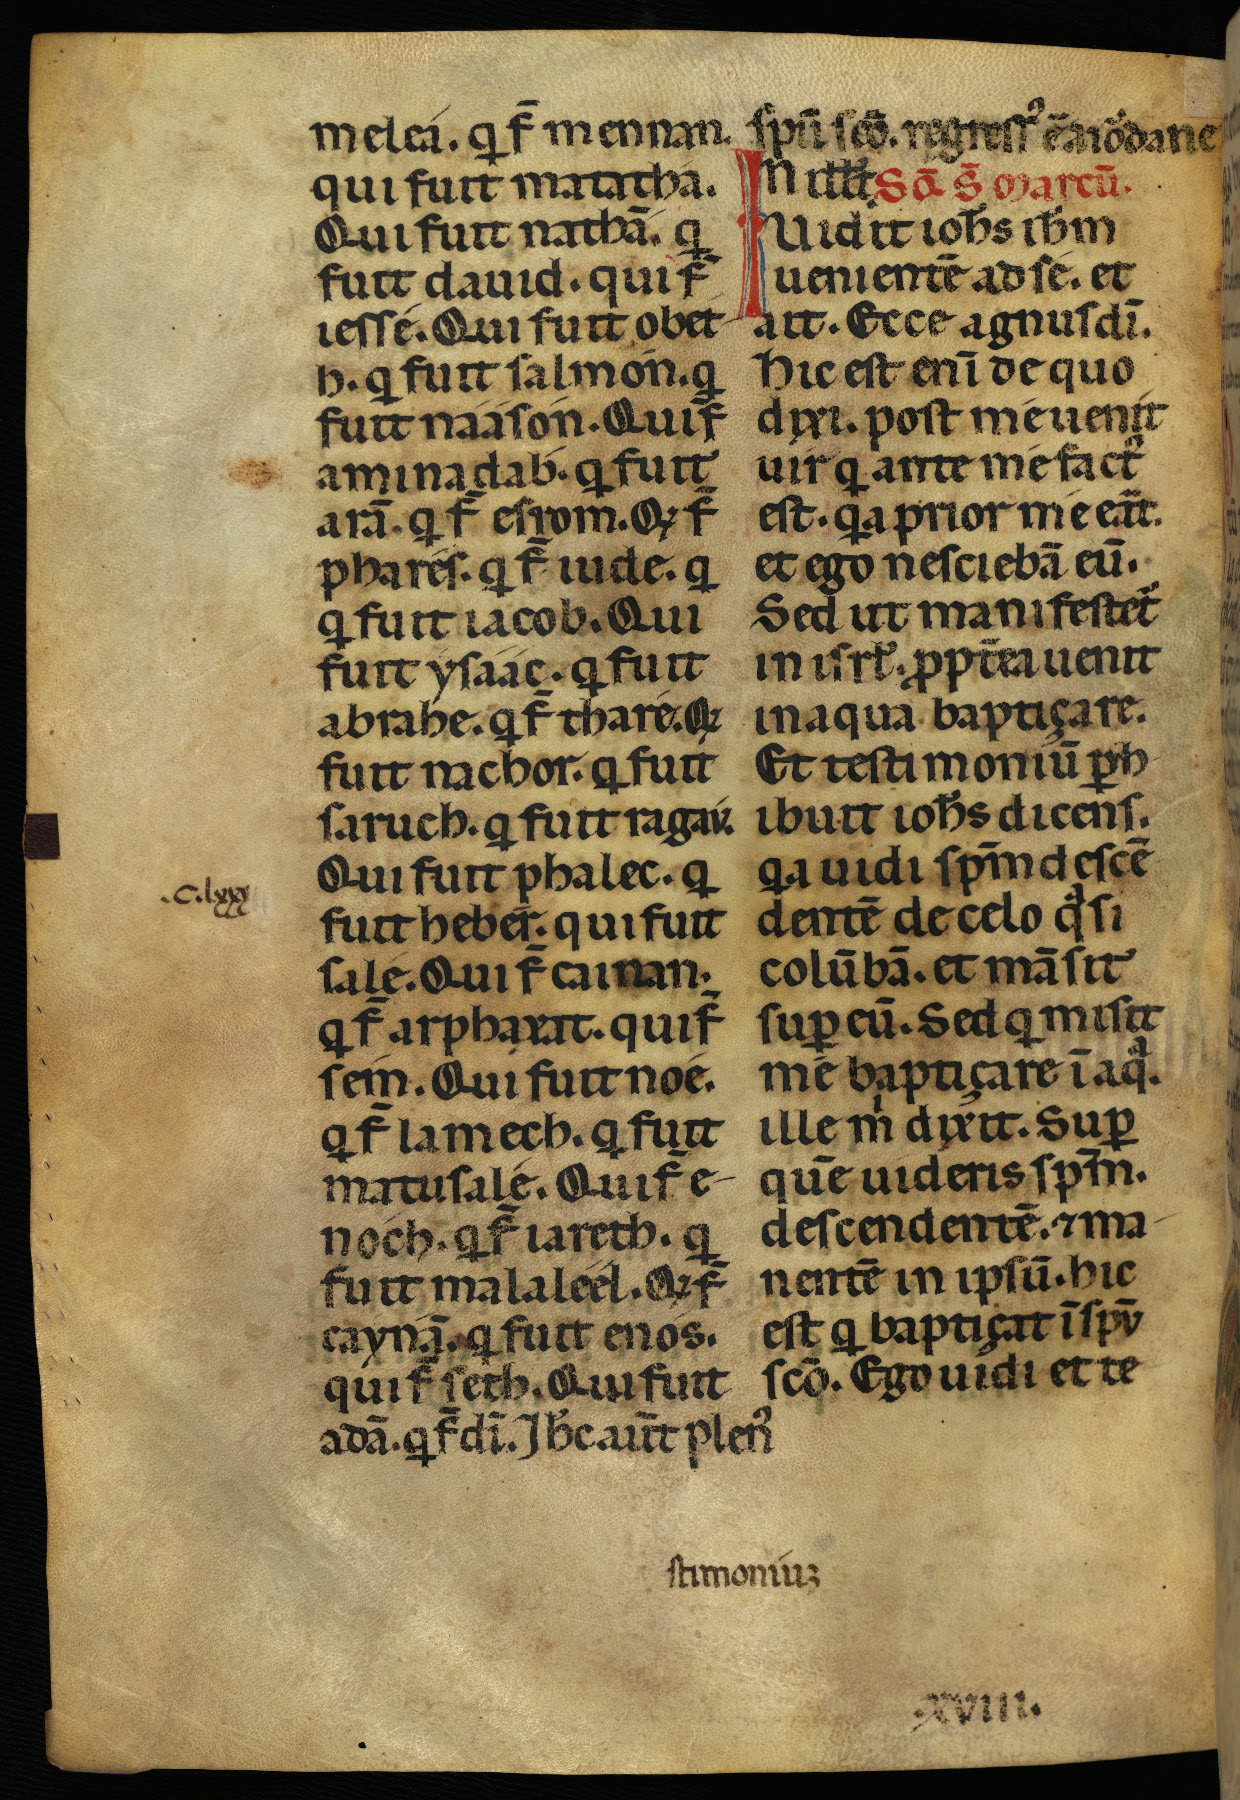 melea. q f̄ mennan.
qui fuit matatha.
Qui fuit nathā. q
fuit dauid. qui f̄
iesse. Qui fuit obet
h. q fuit salmon. q
fuit naason. Qui f̄
aminadab. q fuit
arā. q f̄ esrom. Qı f̄
phares. q f̄ iude. q
q fuit iacob. Qui
fuit ysaac. q fuit
abrahe. q f̄ thare. Qı
fuit nachor. q fuit
saruch. q fuit ragau.
Qui fuit phalec. q
.c.lxxx
fuit heber. qui fuit
sale. Qui f̄ cainan.
q f̄ arphaxat. qui f̄
sem. Qui fuit noe.
q f̄ lamech. q fuit
matusale. Qui f̄ e-
noch. q f̄ iareth. q
fuit malaleel. Qı f̄
caynā. q fuit enos.
qui f̄ seth. Qui fuit
adā. q f̄ di̅. Ih̅c aut̅ plen᾽
spū scō. regress᾽ ē a iordane
In illo Sc̄a s̄ marcū.
Uidit ioh̅s ih̅m
uenientē ad se. et
ait. Ecce agnus di̅.
hic est eni̅ de quo
dixi. post me uenit
uir q ante me fact᾽
est. q̇a prior me eāt.
et ego nesciebā eū.
Sed ut manifestet᾽
in isrl̅. ꝓpt̅ea ueni
in aqua baptiçare.
Et testimoniū ꝑh-
ibuit ioh̅s dicens.
q̇a uidi spm̅ descē
dentē de celo qᵃsi
colūbā. et māsit
suꝑ eū. Sed q misit
me baptiçare ī aqᵃ.
ille mⁱ dixit. Suꝑ
quē uideris spm̅.
descendentē. ⁊ ma-
nentē in ipsū. hic
est q baptiçat ī spū
scō. Ego uidi et te
stimoniuꝫ
.xviii.